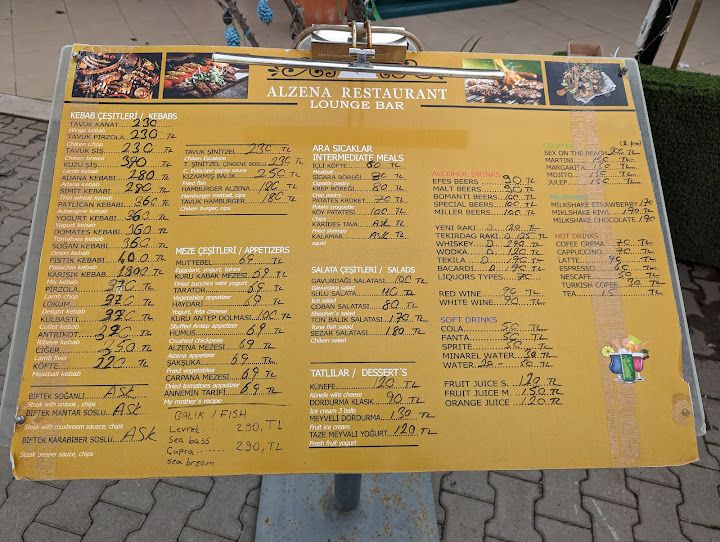 ALZENA RESTAURANT
LOUNGE BAR
KEBAB ÇEŞİTLERİ / KEBABS
TAVUK KANAT 230
Wings kebab
TAVUK PİRZOLA 230
Chiken Chop
TAVUK ŞİŞ 230 TL
Chiken breast
KUZU ŞİŞ TL
Lamb kebab
ADANA KEBABI 280 TL
Adana kebab
SİMİT KEBABI 290 TL
Thin wheat kebab
PATLICAN KEBABI 360 TL
Aubergine kebab
YOGURT KEBABI 360 TL
Yogurt kebab
DOMATES KEBABI 360 TL
Tomatoes kebab
SOĞAN KEBABI 360 TL
Onion kebab
FISTIK KEBABI 400 TL
Pistachio kebab
KARIŞIK KEBAB TL
Mix kebab
PİRZOLA 370 TL
Lamb chop
LOKUM TL
Delight kebab
KÜLBASTI TL
Cutlet kebab
ANTRİKOT TL
Ribeye kebab
CİĞER 250 TL
Lamb liver
KÖFTE 220 TL
Meatball kebab
BİFTEK SOĞANLI ASK
Steak with onions, chips
BİFTEK MANTAR SOSLU ASK
Steak with mushroom sauce, chips
BİFTEK KARABİBER SOSLU ASK
Steak pepper sauce, chips
TAVUK ŞİNİTZEL 230 TL
Chiken Escalope
T. ŞİNİTZEL ÇİNGENE SOSLU 230 TL
C. Eskalope gypsy sauce
KIZARMIŞ BALIK 250 TL
Fried fish
HAMBURGER ALZENA TL
Hamburger meatball, cips
TAVUK HAMBURGER 180 TL
Chiken burger, cips
MEZE ÇEŞİTLERİ / APPETIZERS
MUTTEBEL 69 TL
Eggplant, yogurt, tahini
KURU KABAK MEZESI 69 TL
Dried zucchini wiht yogurt
TARATOR 69 TL
Vegetables appetizer
HAYDARİ 69 TL
Yogurt, feta cheese
KURU ANTEP DOLMASI 100 TL
Stuffed Antep appetizer
HUMUS 69 TL
Crushed chickpeas
ALZENA MEZESİ 69 TL
Alzena appetizer
ŞAKŞUKA 69 TL
Fried vegetables
ÇARPANA MEZESİ 69 TL
Dried tomatoes appetizer
ANNEMIN TARIFI 69 TL
My mother's recipe
BALIK / FISH
Levrek 290,TL
Sea bass
Çupra 290,TL
Sea bream
ARA SICAKLAR
INTERMEDIATF MEALS
İÇLİ KÖFTE 80 TL
Meatball
SİGARA BÖREĞİ 80 TL
Cigarette pastry
KREP BÖREĞİ 80 TL
Crep pastry
PATATES KROKET 70 TL
Potato croquette
KÖY PATATESİ 100 TL
Chips
KARİDES TAVA ASK TL
Fried shrimps
KALAMAR ASK TL
squid
SALATA ÇEŞİTLERİ / SALADS
GAVURDAĞI SALATASI 100 TL
Gavurdag salad
BUZLU SALATA 110 TL
Ice salad
ÇOBAN SALATASI 80 TL
Shepherd's salad
TON BALIK SALATASI 170 TL
Tuna fish salad
SEZAR SALATASI 180 TL
Chiken salad
TATLILAR / DESSERT'S
KÜNEFE 120 TL
Künefe wiht cheese
DORDURMA KLASIK 90 TL
Ice cream 3 balls
MEYVELİ DORDURMA 130 TL
Fruit ice cream
TAZE MEYVALI YOĞURT 120 TL
Fresh fruit yogurt
ALCOHOL DRINKS
EFES BEERS 90 TL
MALT BEERS 90 TL
BOMANTI BEERS 100 TL
SPECIAL BEERS 100 TL
MILLER BEERS 100 TL
YENI RAKI D 120 TL
TEKIRDAG RAKI D 125 TL
WHISKEY D 290 TL
WODKA D 120 TL
TEKILA D TL
BACARDI D TL
LIQUORS TYPES TL
RED WINE 90 TL
WHITE WINE 90 TL
SOFT DRINKS
COLA TL
FANTA TL
SPRITE TL
MINAREL WATER 30 TL
WATER TL
FRUIT JUICE S. 120 TL
FRUIT JUICE M. 150 TL
ORANGE JUICE 120 TL
SEX ON THE BEACH TL
MARTINI TL
MARGARITA TL
MOJITO TL
JULEP TL
MILKSHAKE STRAWBERRY 170
MILKSHAKE KIWI 170 TL
MILKSHAKE CHOCOLATE 170
HOT DRINKS
COFEE CREMA 70 TL
CAPPUCCINO 70 TL
LATTE 95 TL
ESPRESSO TL
NESCAFE TL
TURKISH COFEE 30 TL
TEA 15 TL